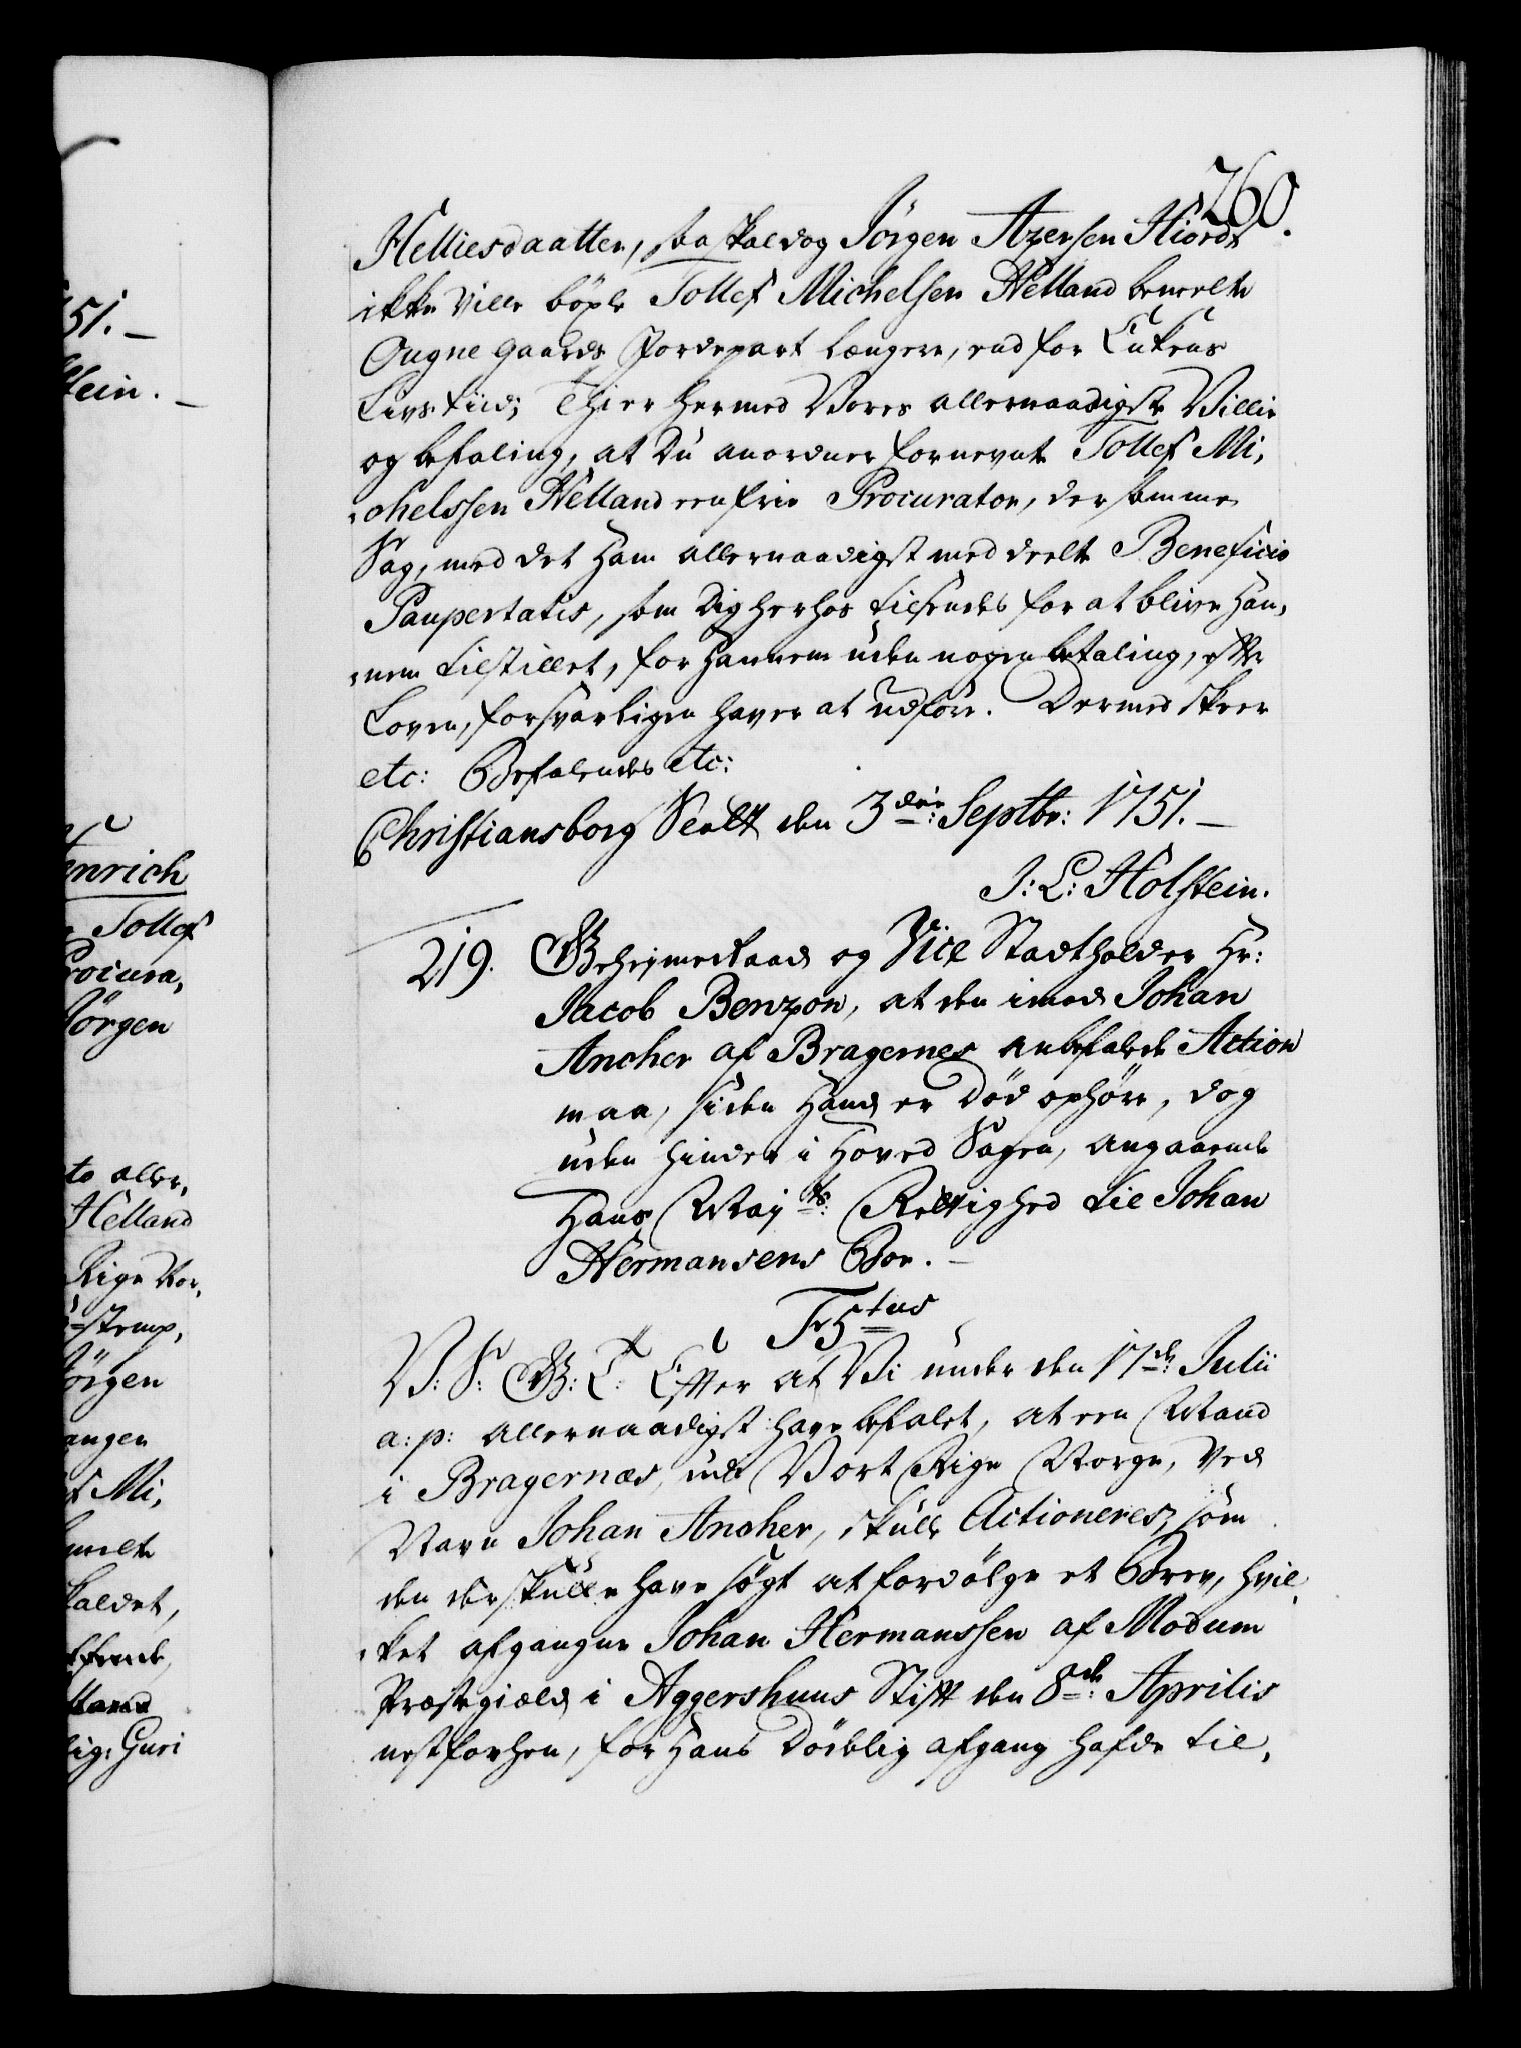 260.
Helliesdaatter, saa skal dog Jörgen Azersen Hiords
ikke ville böxle Tollef Michelsen Helland bemelte
Ougne Gaards Jordepart længere, end for Enkens
Livs-Tiid; Thi er hermed Vores allernaadigste Villie
og befaling, at Du anordner fornevnte Tollef Mi,
,chelssen Helland een frie Procurator, der samme
Sag, med det ham allernaadigst meddeelte Beneficio
Paupertatis, som dig herhos tilsendes for at blive han,
,nem tilstillet, for hannem uden nogen betaling, efter
Loven, forsvarligen haver at udföre. Dermed skeer
etc: Befalendes etc:
Christiansborg Slott den 3die: Septbr: 1751. –
J: L: Holstein.
219. Geheimeraad og Vice Stadtholder Hr:
Jacob Benzon, at den imod Johan
Ancher af Bragernes anbefalede Action
maa, siden Hand er död ophöre, dog
uden hinder i Hoved Sagen, angaaende
Hans Majts: Rettighed til Johan
Hermansens Boe. –
Fr 5tus
V: S: G: T: Efter at Vi under den 17de: Julii
a: p: allernaadigst have befalet, at een Mand
i Bragernæs, udi Vort Rige Norge, ved
Navn Johan Ancher, skulle Actioneres, som
den der skulle have sögt at fordölge et Brev, hvil,
,ket afgangne Johan Hermanssen af Modum
Præstegield i Aggershuus Stift den 8de: Aprilis
nestforhen, for Hans dödelig afgang hafde til,
51. –
stein. –
enrich
Tollef
Procura,
Jörgen
to aller,
Helland
Rige Nor,
Jörgen
angen
f Mi,
Guri